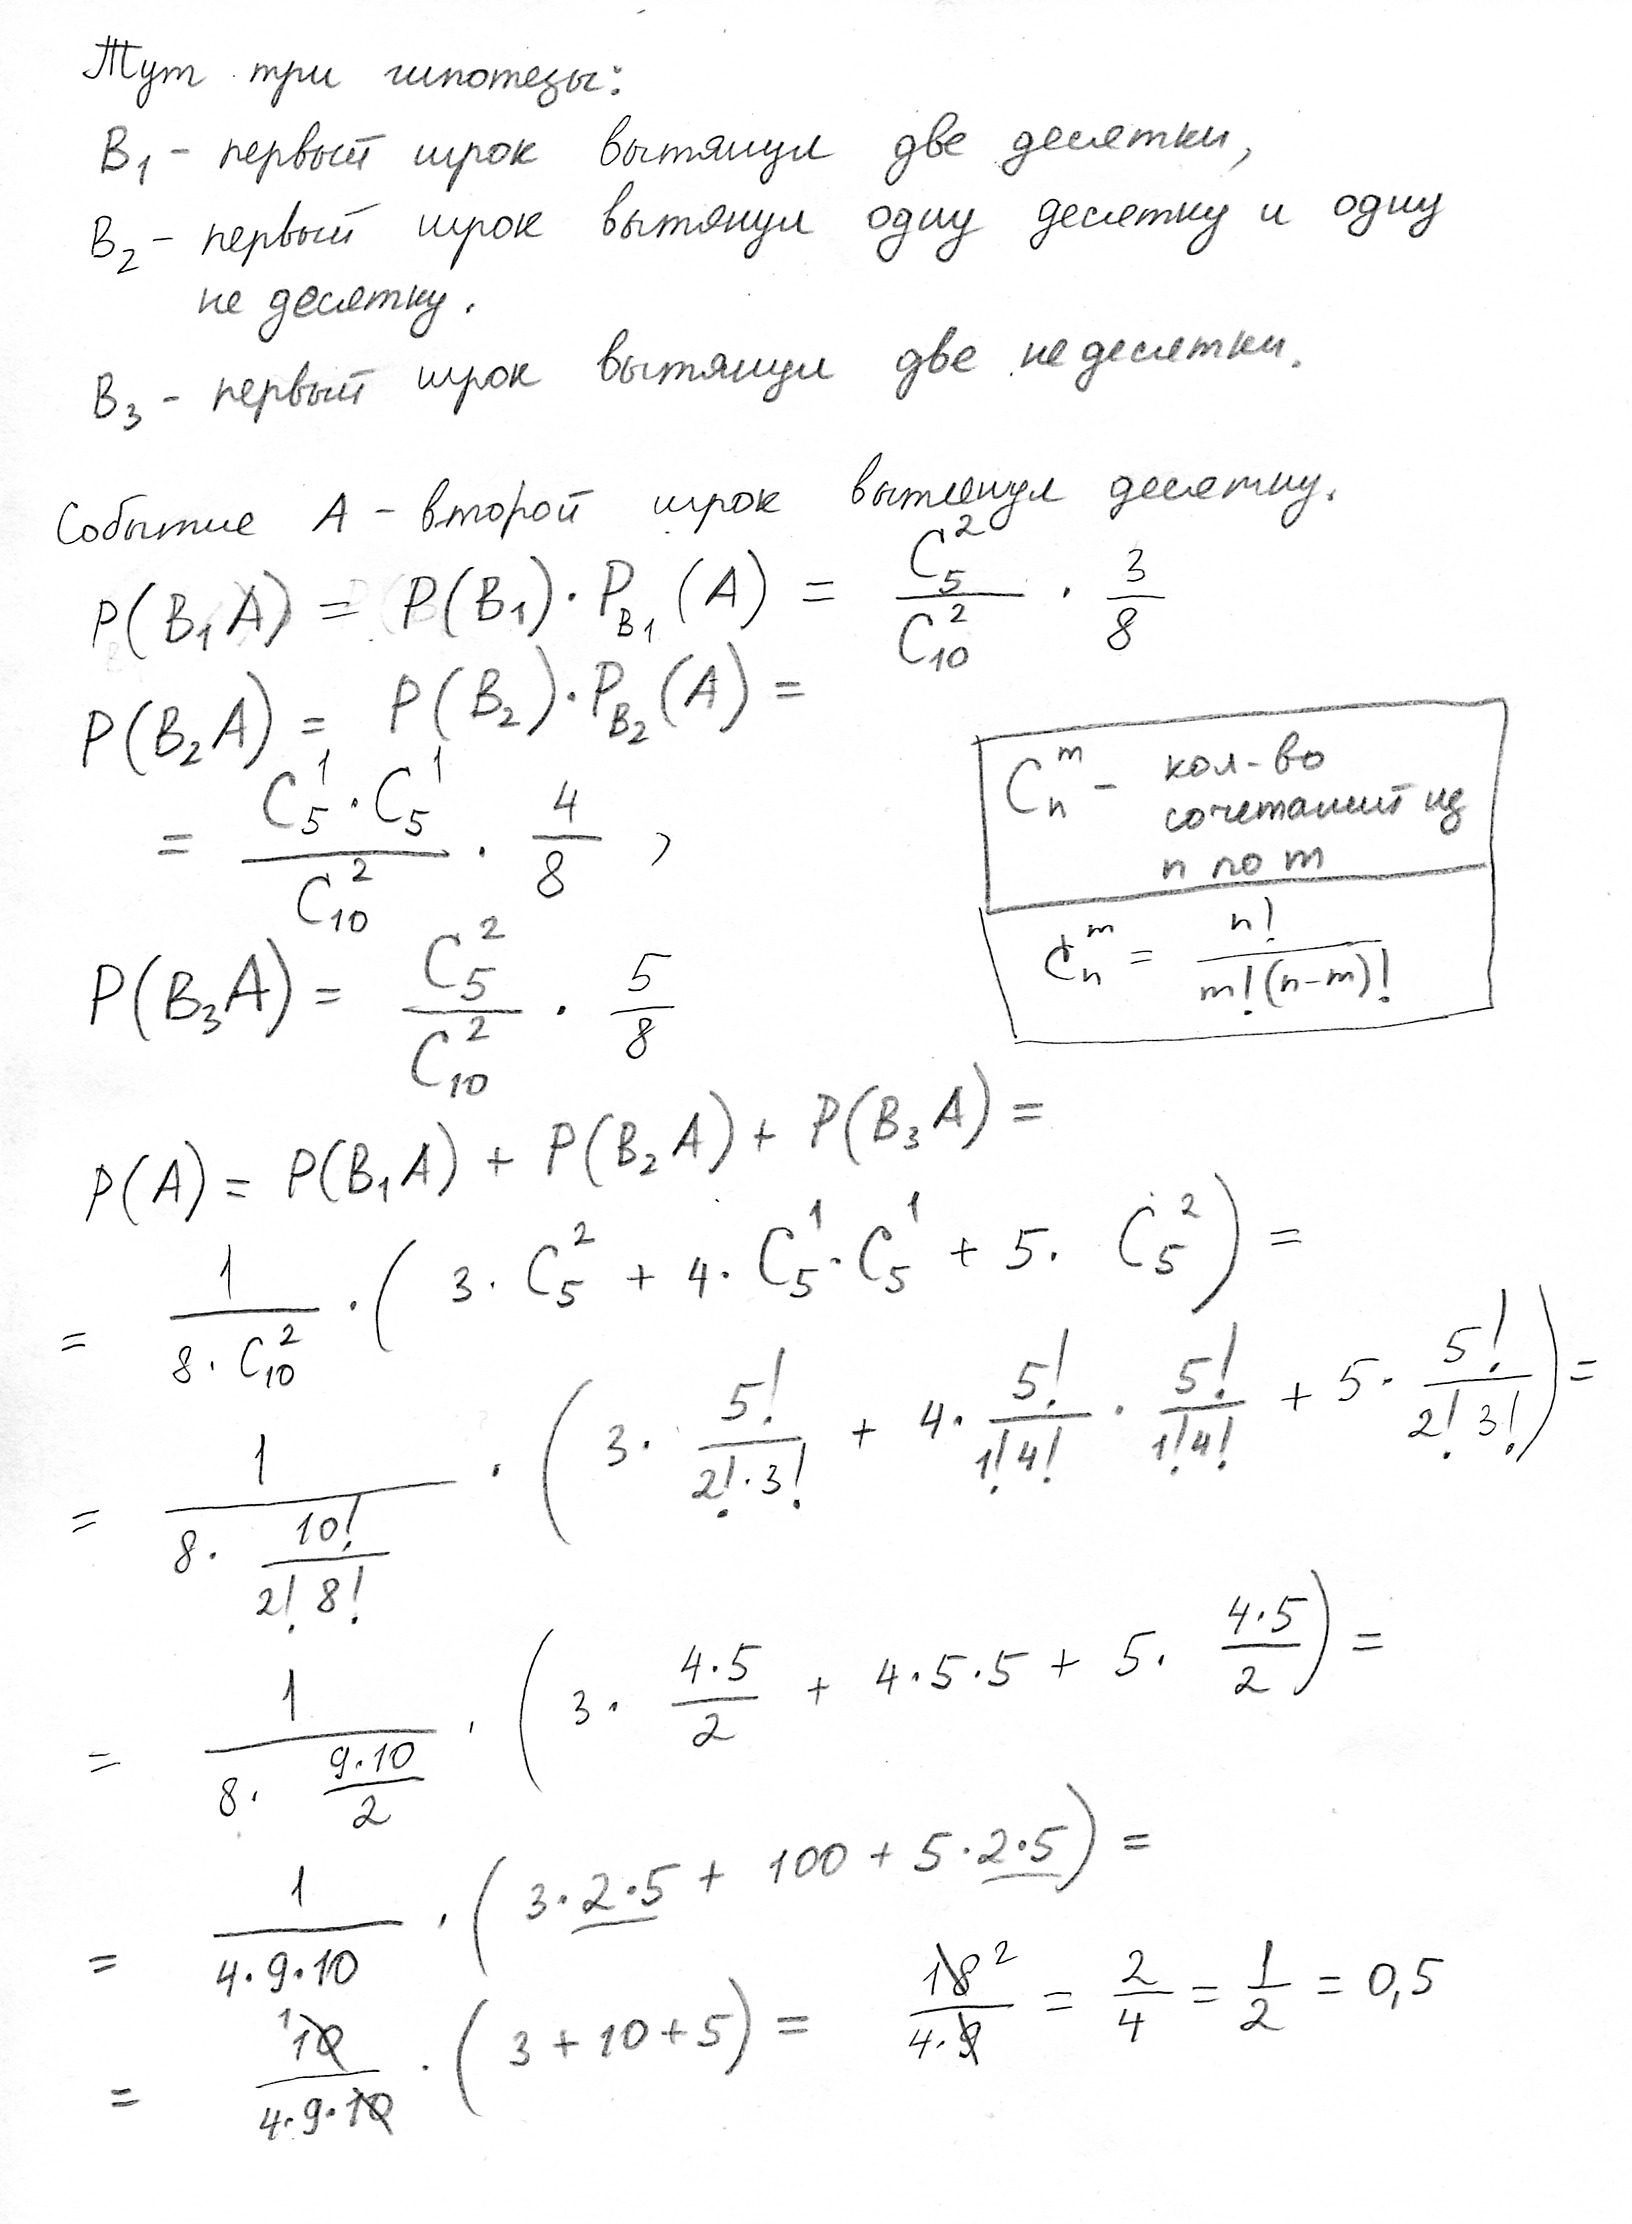 Тут три гипотезы:
B₁ - первый игрок вытянул две десятки,
B₂ - первый игрок вытянул одну десятку и одну
не десятку.
B₃ - первый игрок вытянул две не десятки.
Событие A - второй игрок вытянул десятку.
P(B₁A) = P(B₁)·P_B₁(A) = C₅²/C₁₀² · 3/8
P(B₂A) = P(B₂)·P_B₂(A) =
= C₅¹·C₅¹/C₁₀² · 4/8,
Cₙᵐ - кол-во
сочетаний из
n по m
Cₙᵐ = n!/m!(n-m)!
P(B₃A) = C₅²/C₁₀² · 5/8
P(A) = P(B₁A) + P(B₂A) + P(B₃A) =
= 1/(8·C₁₀²) · (3·C₅² + 4·C₅¹·C₅¹ + 5·C₅²) =
= 1/(8·10!/(2!8!)) · (3·5!/(2!·3!) + 4·5!/(1!4!)·5!/(1!4!) + 5·5!/(2!3!)) =
= 1/(8·9·10/2) · (3·4·5/2 + 4·5·5 + 5·4·5/2) =
= 1/(4·9·10) · (3·2·5 + 100 + 5·2·5) =
= 10/(4·9·10) · (3+10+5) = 18/(4·9) = 2/4 = 1/2 = 0,5